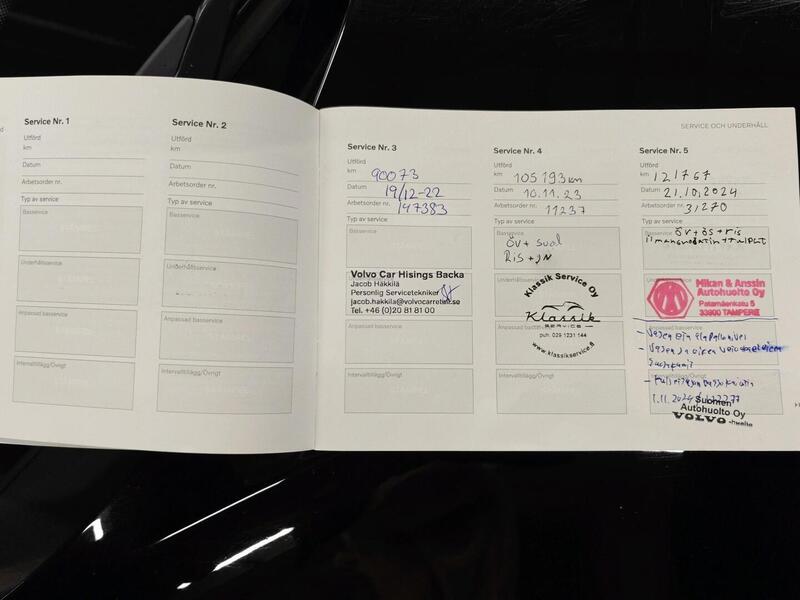 Service Nr. 1
Utförd
km
Datum
Arbetsorder nr.
Typ av service
Basservice
Underhållsservice
Anpassad basservice
Intervalltillägg/Övrigt
Service Nr. 2
Utförd
km
Datum
Arbetsorder nr.
Typ av service
Basservice
Underhållsservice
Anpassad basservice
Intervalltillägg/Övrigt
Service Nr. 3
Utförd
km 90073
Datum 19/12-22
Arbetsorder nr. 147383
Typ av service
Basservice
Volvo Car Hisings Backa
Jacob Häkkilä
Personlig Servicetekniker
jacob.hakkila@volvocarretail.se
Tel. +46 (0)20 81 81 00
Anpassad basservice
Intervalltillägg/Övrigt
SERVICE OCH UNDERHÅLL
Service Nr. 4
Utförd
km 105 193 km
Datum 10.11.23
Arbetsorder nr. 11237
Typ av service
Basservice
ÖV +
Klassik Service Oy
Klassik
SERVICE
puh. 029 1231 144
www.klassikservice.fi
Intervalltillägg/Övrigt
Service Nr. 5
Utförd
km 121767
Datum 21.10.2024
Arbetsorder nr. 31270
Typ av service
Basservice ÖV + ÖS + RIS
Mikan & Anssin
Autohuolto Oy
Patamäenkatu 5
33900 TAMPERE
- Vasen
- Vasen ja oikea
1.11.2024
Suomen
Autohuolto Oy
VOLVO -huolto